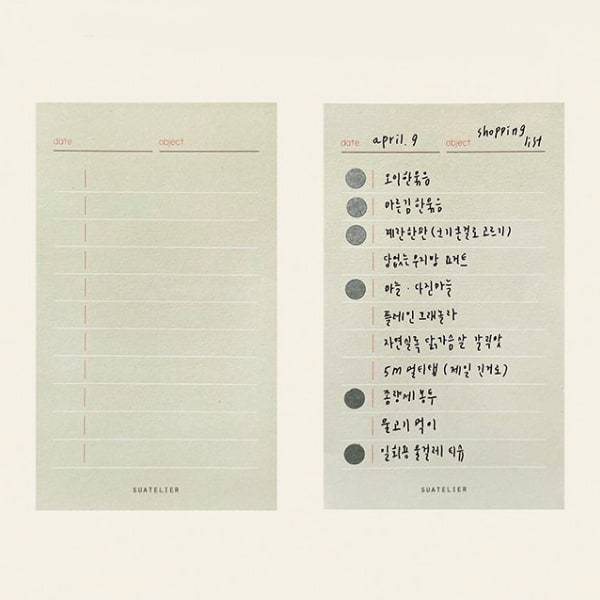 date
object
SUATELIER
date
april. 9
object
shopping
list
오이 한묶음
마른김 한묶음
계란 한판 (크기순 결로 고르기)
당없는 우리땅 요거트
마늘 · 다진마늘
플레인 그래놀라
자연실록 닭가슴살
5M 멀티탭 (제일 긴거로)
종량제 봉투
물고기 먹이
일회용 물걸레 티슈
SUATELIER